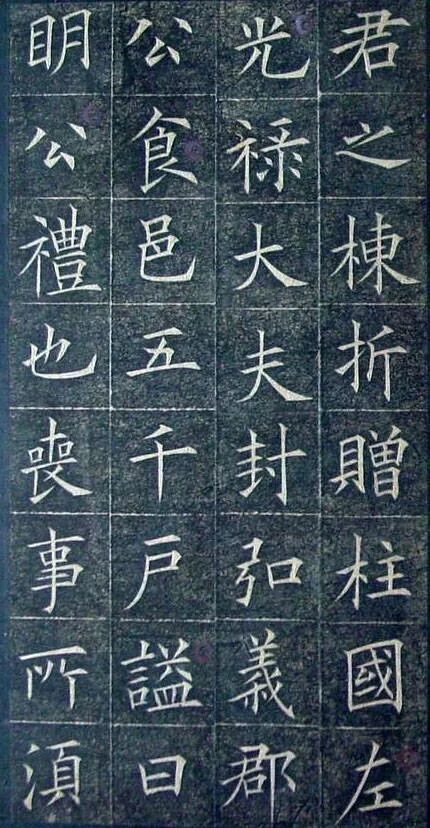 君之棟折贈柱國左
光祿大夫封弘義郡
公食邑五千戶謚曰
明公禮也喪事所須